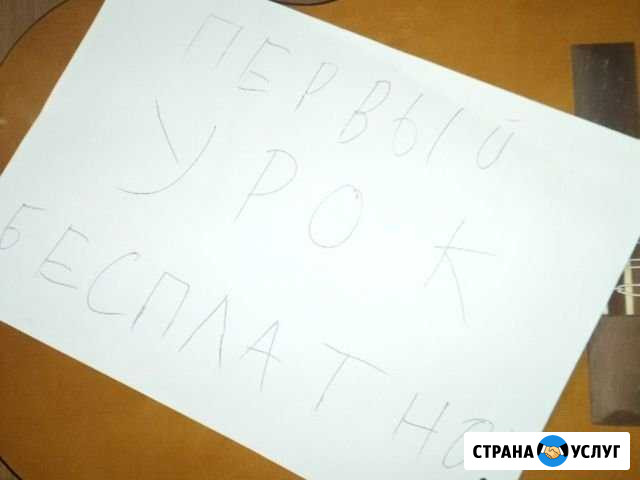 ПЕРВЫЙ
УРОК
БЕСПЛАТНО
СТРАНА УСЛУГ